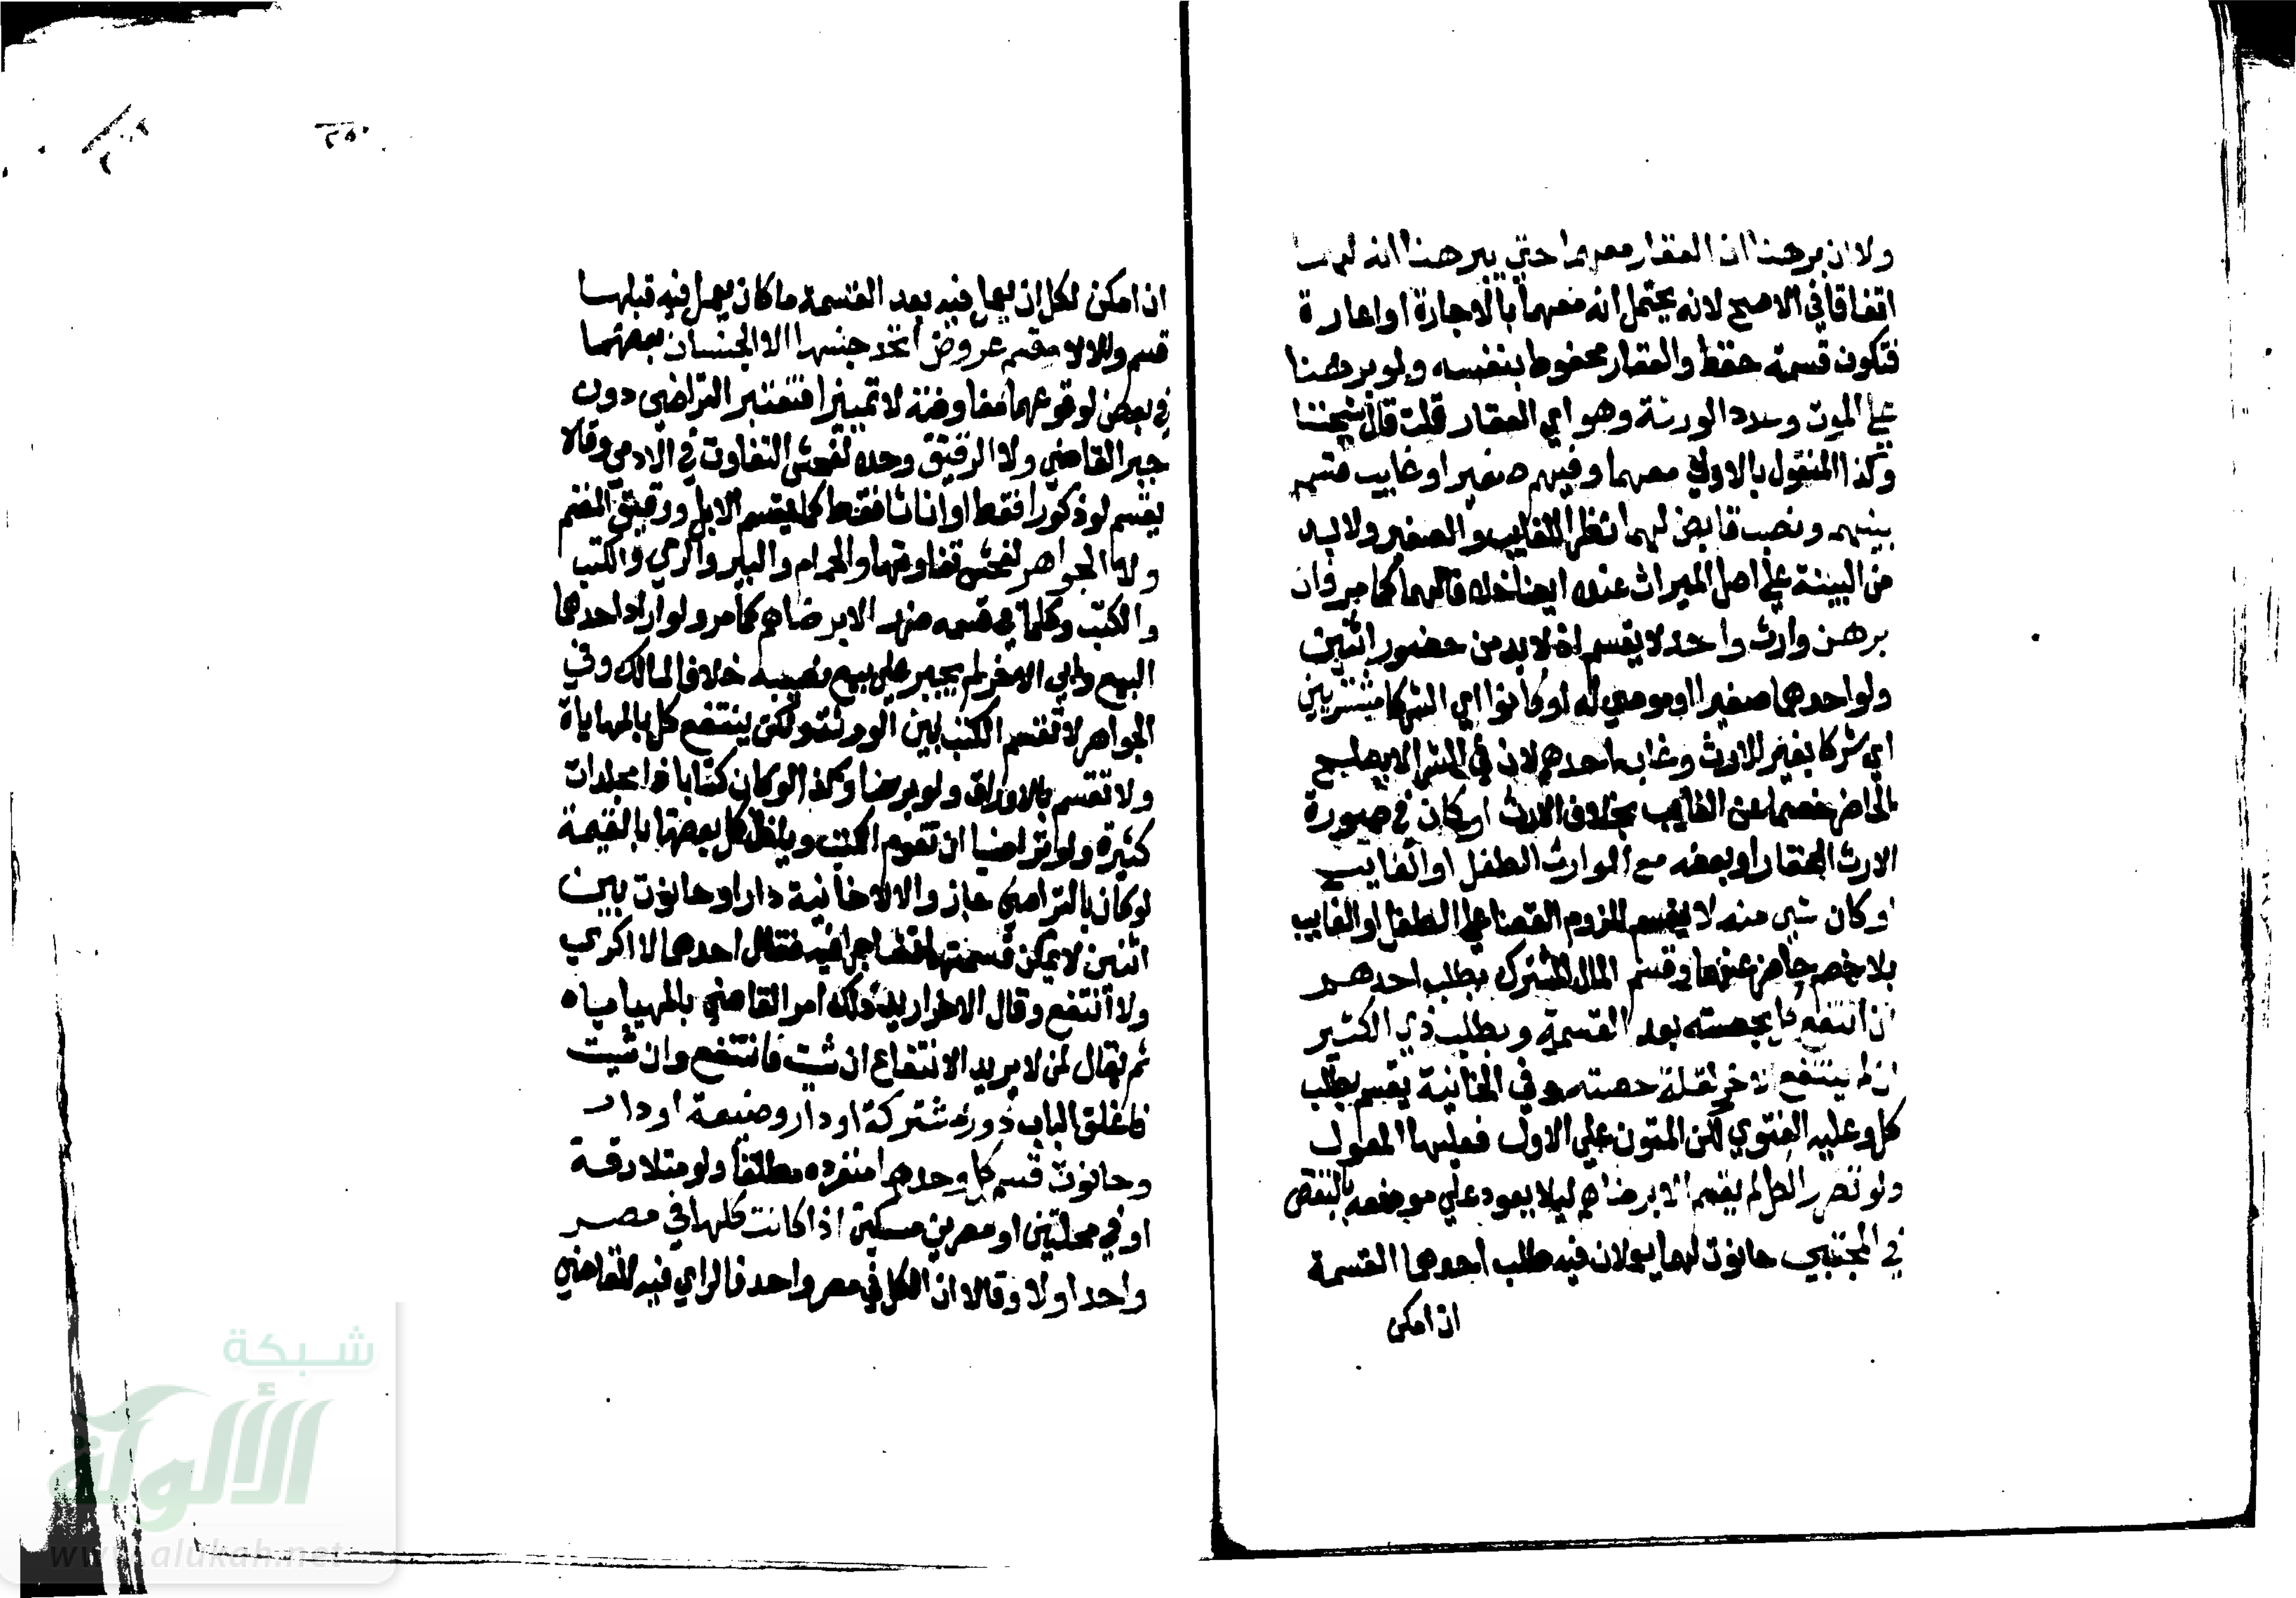 ولا ان برهنا ان العقار معهما حتي يبرهنا انه لهما
اتفاقا في الاصح لانه يحتمل انه معهما بالاجارة او اعارة
فتكون قسمة حفظ والعقار محفوظ بنفسه ولو برهنا
علي الموت وعدد الورثة وهو اي العقار قلت قال شيخنا
وكذا المنقول بالاولي معهما وفيهم صغير او غايب قسم
بينهم ونصب قابض لهما نظرا للغايب والصغير ولا بد
من البينة علي اصل الميراث عنده ايضا خلافا لهما كما مر فان
برهن وارث واحد لا يقسم اذ لا بد من حضور اثنين
ولو احدهما صغيرا او موصي له او كانوا اي الشركا مشتريين
اي شركا بغير الارث وغاب احدهم لان في الشرا لا يصلح
الحاضر خصما عن الغايب بخلاف الارث او كان في صورة
الارث العقار او بعضه مع الوارث الطفل او الغايب
او كان شي منه لا يقسم للزوم القضا علي الطفل او الغايب
بلا خصم حاضر عنهما وقسم المال المشترك بطلب احدهم
ان انتفع كل بحصته بعد القسمة وبطلب ذي الكثير
ان لم ينتفع الاخر لقلة حصته وفي الخانية يقسم بطلب
كل وعليه الفتوي لكن المتون علي الاول فعليها المعول
ولو تضرر الكل لم يقسم الا برضاهم ليلا يعود علي موضعه بالنقض
في المجتبي حانوت لهما يعملان فيه طلب احدهما القسمة
ان امكن
٢٥٠
ان امكن لكل ان يعمل فيه بعد القسمة ما كان يعمل فيه قبلها
قسم والا لا وقسم عروض اتحد جنسها لا الجنسان بعضهما
في بعض لوقوعهما معاوضة لا تمييزا فتعتبر التراضي دون
جبر القاضي ولا الرقيق وحده لفحش التفاوت في الادمي وقالا
يقسم لو ذكورا فقط او اناثا فقط كما يقسم الابل ورقيق المغنم
ولا الجواهر لفحش تفاوتها والحمام والبير والرحي والكتب
والكتب وكلما في قسمه ضرر الا برضاهم كما مر ولو اراد احدهما
البيع وابي الاخر لم يجبر علي بيع نصيبه خلافا لمالك وفي
الجواهر لا تقسم الكتب بين الورثة ولكن ينتفع كل بالمهاياة
ولا تقسم بالاوراق ولو برضا وكذا لو كان كتابا ذا مجلدات
كثيرة ولو تراضيا ان تقوم الكتب وياخذ كل بعضها بالقيمة
لو كان بالتراضي جاز والا لا خانية دار او حانوت بين
اثنين لا يمكن قسمتها تشاجرا فيه فقال احدهما لا اكري
ولا انتفع وقال الاخر اريد ذلك امر القاضي بالمهاياه
ثم يقال لمن لا يريد الانتفاع ان شيت فانتفع وان شيت
فاغلق الباب دور مشتركة او دار وضيعة او دار
وحانوت قسم كل وحدها منفرده مطلقا ولو متلازقة
او في محلتين او مصرين مسكين اذا كانت كلها في مصر
واحد او لا وقالا ان الكل في مصر واحد فالراي فيه للقاضي
شبكة
الألوكة
www.alukah.net